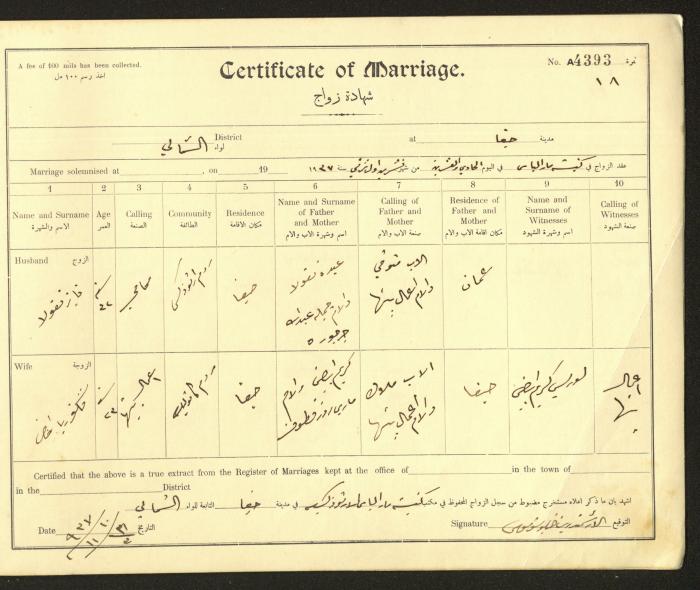 A fee of 100 mils has been collected.
اخذ رسم ١٠٠ مل
Certificate of Marriage.
شهادة زواج
No. A4393 نمرة
١٨
District لواء الشمالي at حيفا مدينة
Marriage solemnised at , on 19 سنة ١٩٣٧ تشرين اول شرقي من شهر الحادي والعشرين في اليوم كنيسة مار الياس عقد الزواج في
1 2 3 4 5 6 7 8 9 10
Name and Surname الاسم والشهرة
Age العمر
Calling الصنعة
Community الطائفة
Residence مكان الاقامة
Name and Surname of Father and Mother اسم وشهرة الاب والام
Calling of Father and Mother صنعة الاب والام
Residence of Father and Mother مكان اقامة الاب والام
Name and Surname of Witnesses اسم وشهرة الشهود
Calling of Witnesses صنعة الشهود
Husband الزوج
نقولا
سنة
محامي
روم ارثوذكس
حيفا
عبده نقولا والام جميله عبدالله
الاب متوفي والام اعمال بيتها
عمان
Wife الزوجة
سنة
اعمال بيتها
روم كاثوليك
حيفا
كريم ابيض والام ماري روز قطوف
الاب ملاك والام اعمال بيتها
حيفا
لوريس كريم ابيض
اعمال بيتها
Certified that the above is a true extract from the Register of Marriages kept at the office of in the town of
in the District
اشهد بان ما ذكر اعلاه مستخرج مضبوط من سجل الزواج المحفوظ في مكتب كنيسة مار الياس في مدينة حيفا التابعة للواء الشمالي
Date التاريخ
Signature التوقيع